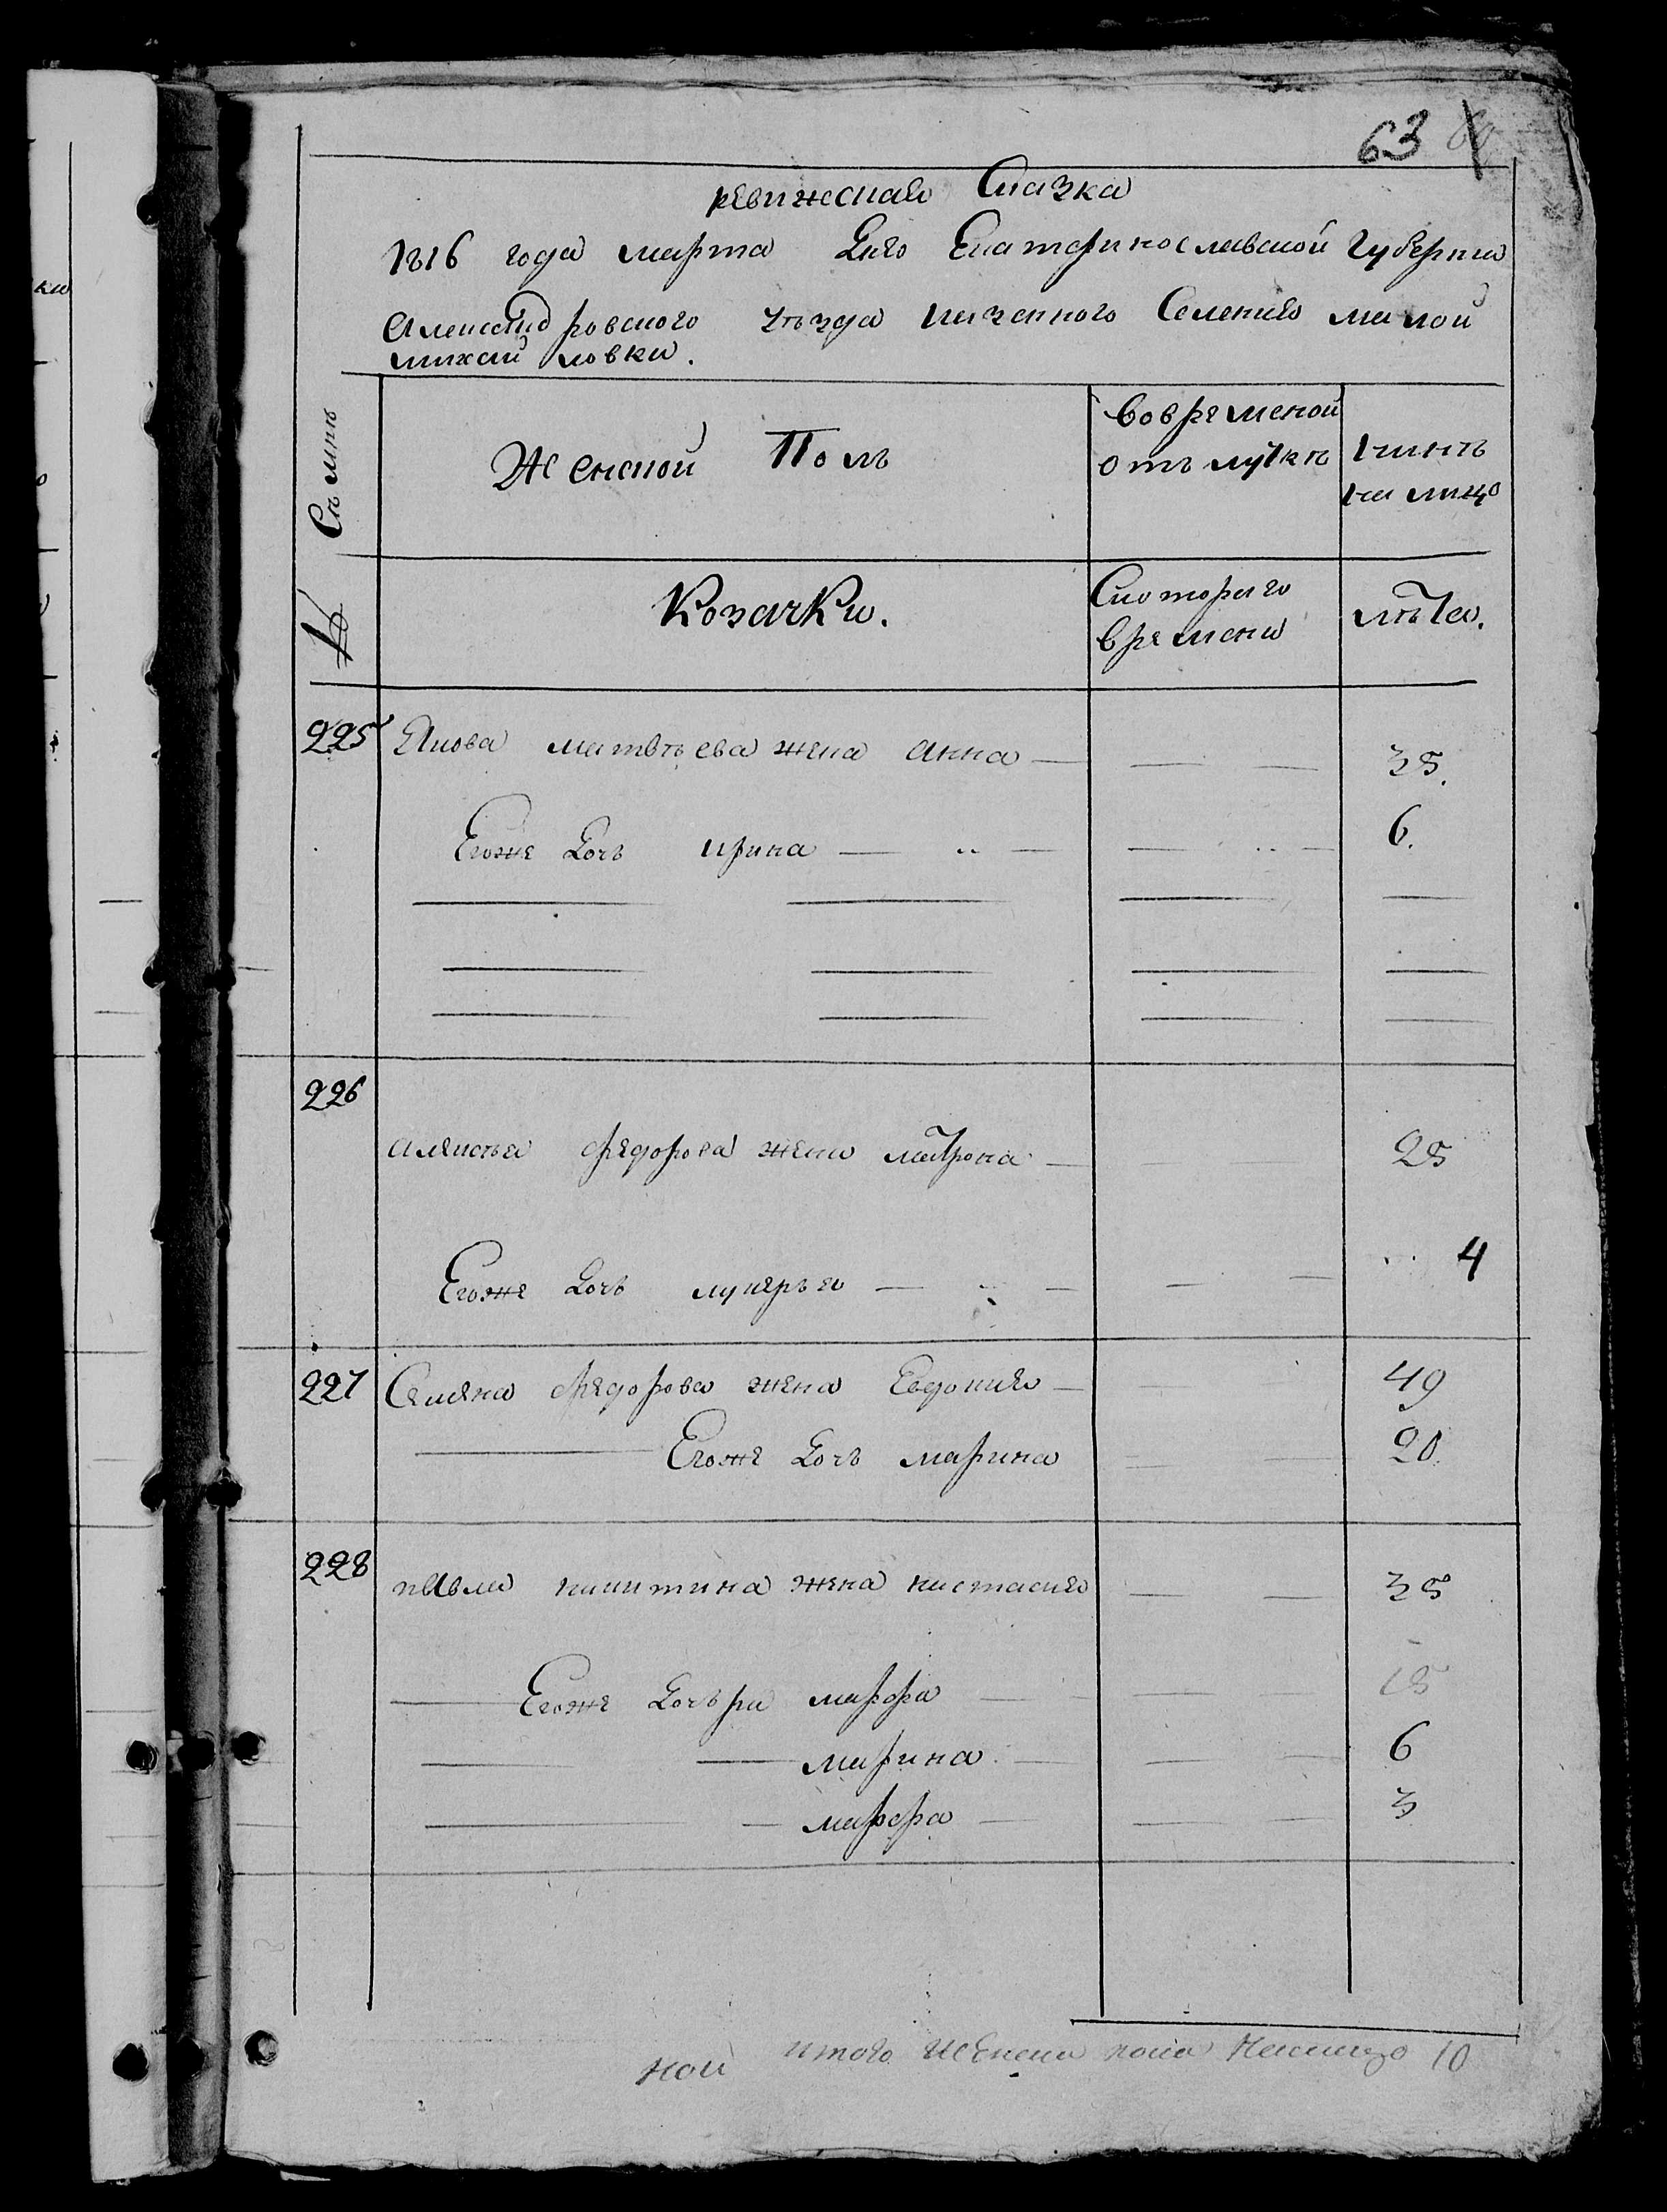 63
ревижская Сказка
1816 года марта Дня Екатеринославской губернии
Александровского уъзда казенного Селения малой
михайловки.
Съмиѣ
Женской Полъ
вовременой
отълучкѣ
нынѣ
на лицо
№
Козачки.
Скоторого
времени
лѣта.
225 Якова матвѣева жена анна 35.
Егоже Дочъ ирина 6.
226
алексѣя федорова жена матрона 25
Егоже Дочъ лукеръя 4
227 Семена федорова жена Евдокия 49
Егоже Дочъ марина 20
228
павла никитина жена настасия 35
Егоже Дочъри марфа 15
марина 6
марфа 3
итого Женска пола Налицо 10
ной